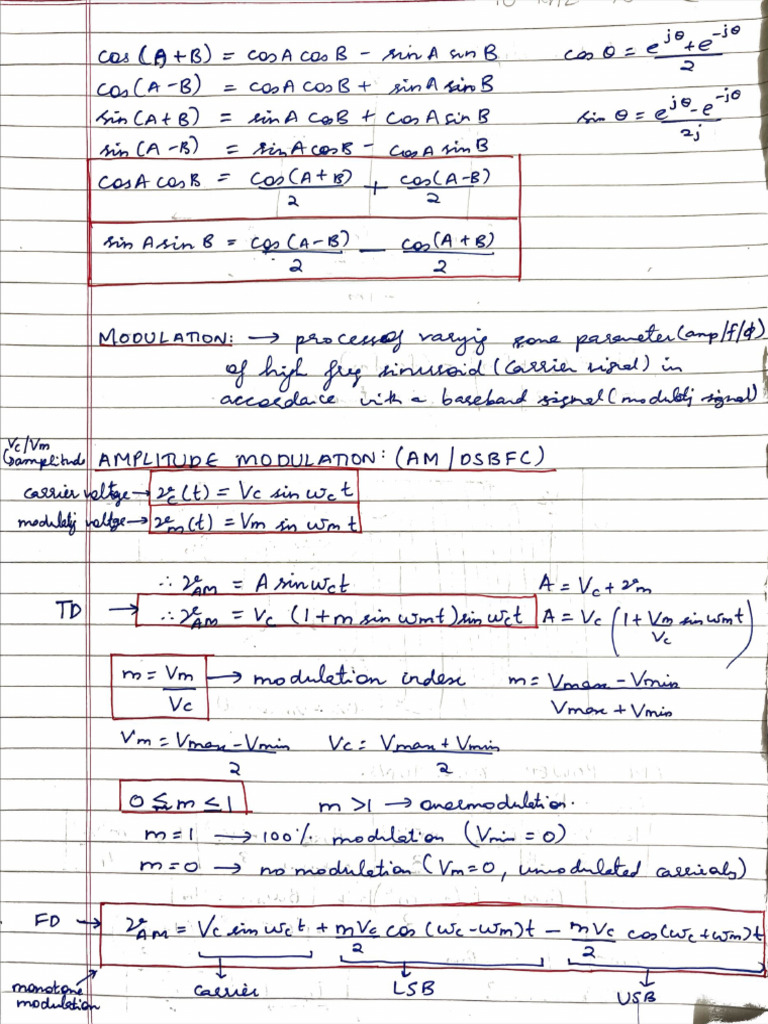 cos(A+B) = cosA cosB - sinA sinB    cos θ = (e^{jθ} + e^{-jθ})/2
cos(A-B) = cosA cosB + sinA sinB
sin(A+B) = sinA cosB + cosA sinB    sin θ = (e^{jθ} - e^{-jθ})/2j
sin(A-B) = sinA cosB - cosA sinB
cosA cosB = cos(A+B)/2 + cos(A-B)/2
sinA sinB = cos(A-B)/2 - cos(A+B)/2
MODULATION: → process of varying some parameter (amp/f/ϕ)
of high freq sinusoid (carrier signal) in
accordance with a baseband signal (modulatg signal)
Vc/Vm
↳ amplitude AMPLITUDE MODULATION: (AM/DSBFC)
carrier voltge → v_c(t) = Vc sin ωct
modulatg voltge → v_m(t) = Vm sin ωmt
∴ v_AM = A sin ωct    A = Vc + v_m
TD → ∴ v_AM = Vc (1 + m sin ωmt) sin ωct    A = Vc (1 + Vm/Vc sin ωmt)
m = Vm/Vc → modulation index    m = (Vmax - Vmin)/(Vmax + Vmin)
Vm = (Vmax - Vmin)/2    Vc = (Vmax + Vmin)/2
0 ≤ m ≤ 1    m > 1 → overmodulation.
m = 1 → 100% modulation (Vmin = 0)
m = 0 → no modulation (Vm = 0, unmodulated carrier)
FD → v_AM = Vc sin ωct + mVc/2 cos(ωc - ωm)t - mVc/2 cos(ωc + ωm)t
monotone modulation    carrier    LSB    USB